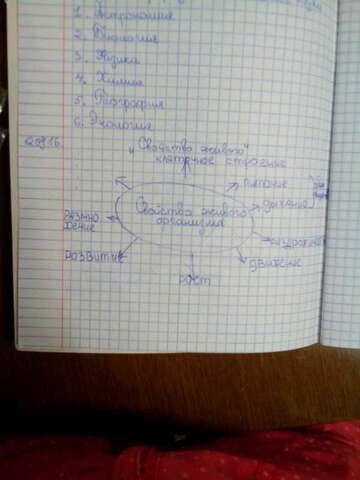 1. Астрономия
2. Биология
3. Физика
4. Химия
5. География
6. Экология
"Свойства живого"
клеточное строение
питание
дыхание
Свойства живого
организма
размно
жение
развитие
движение
рост